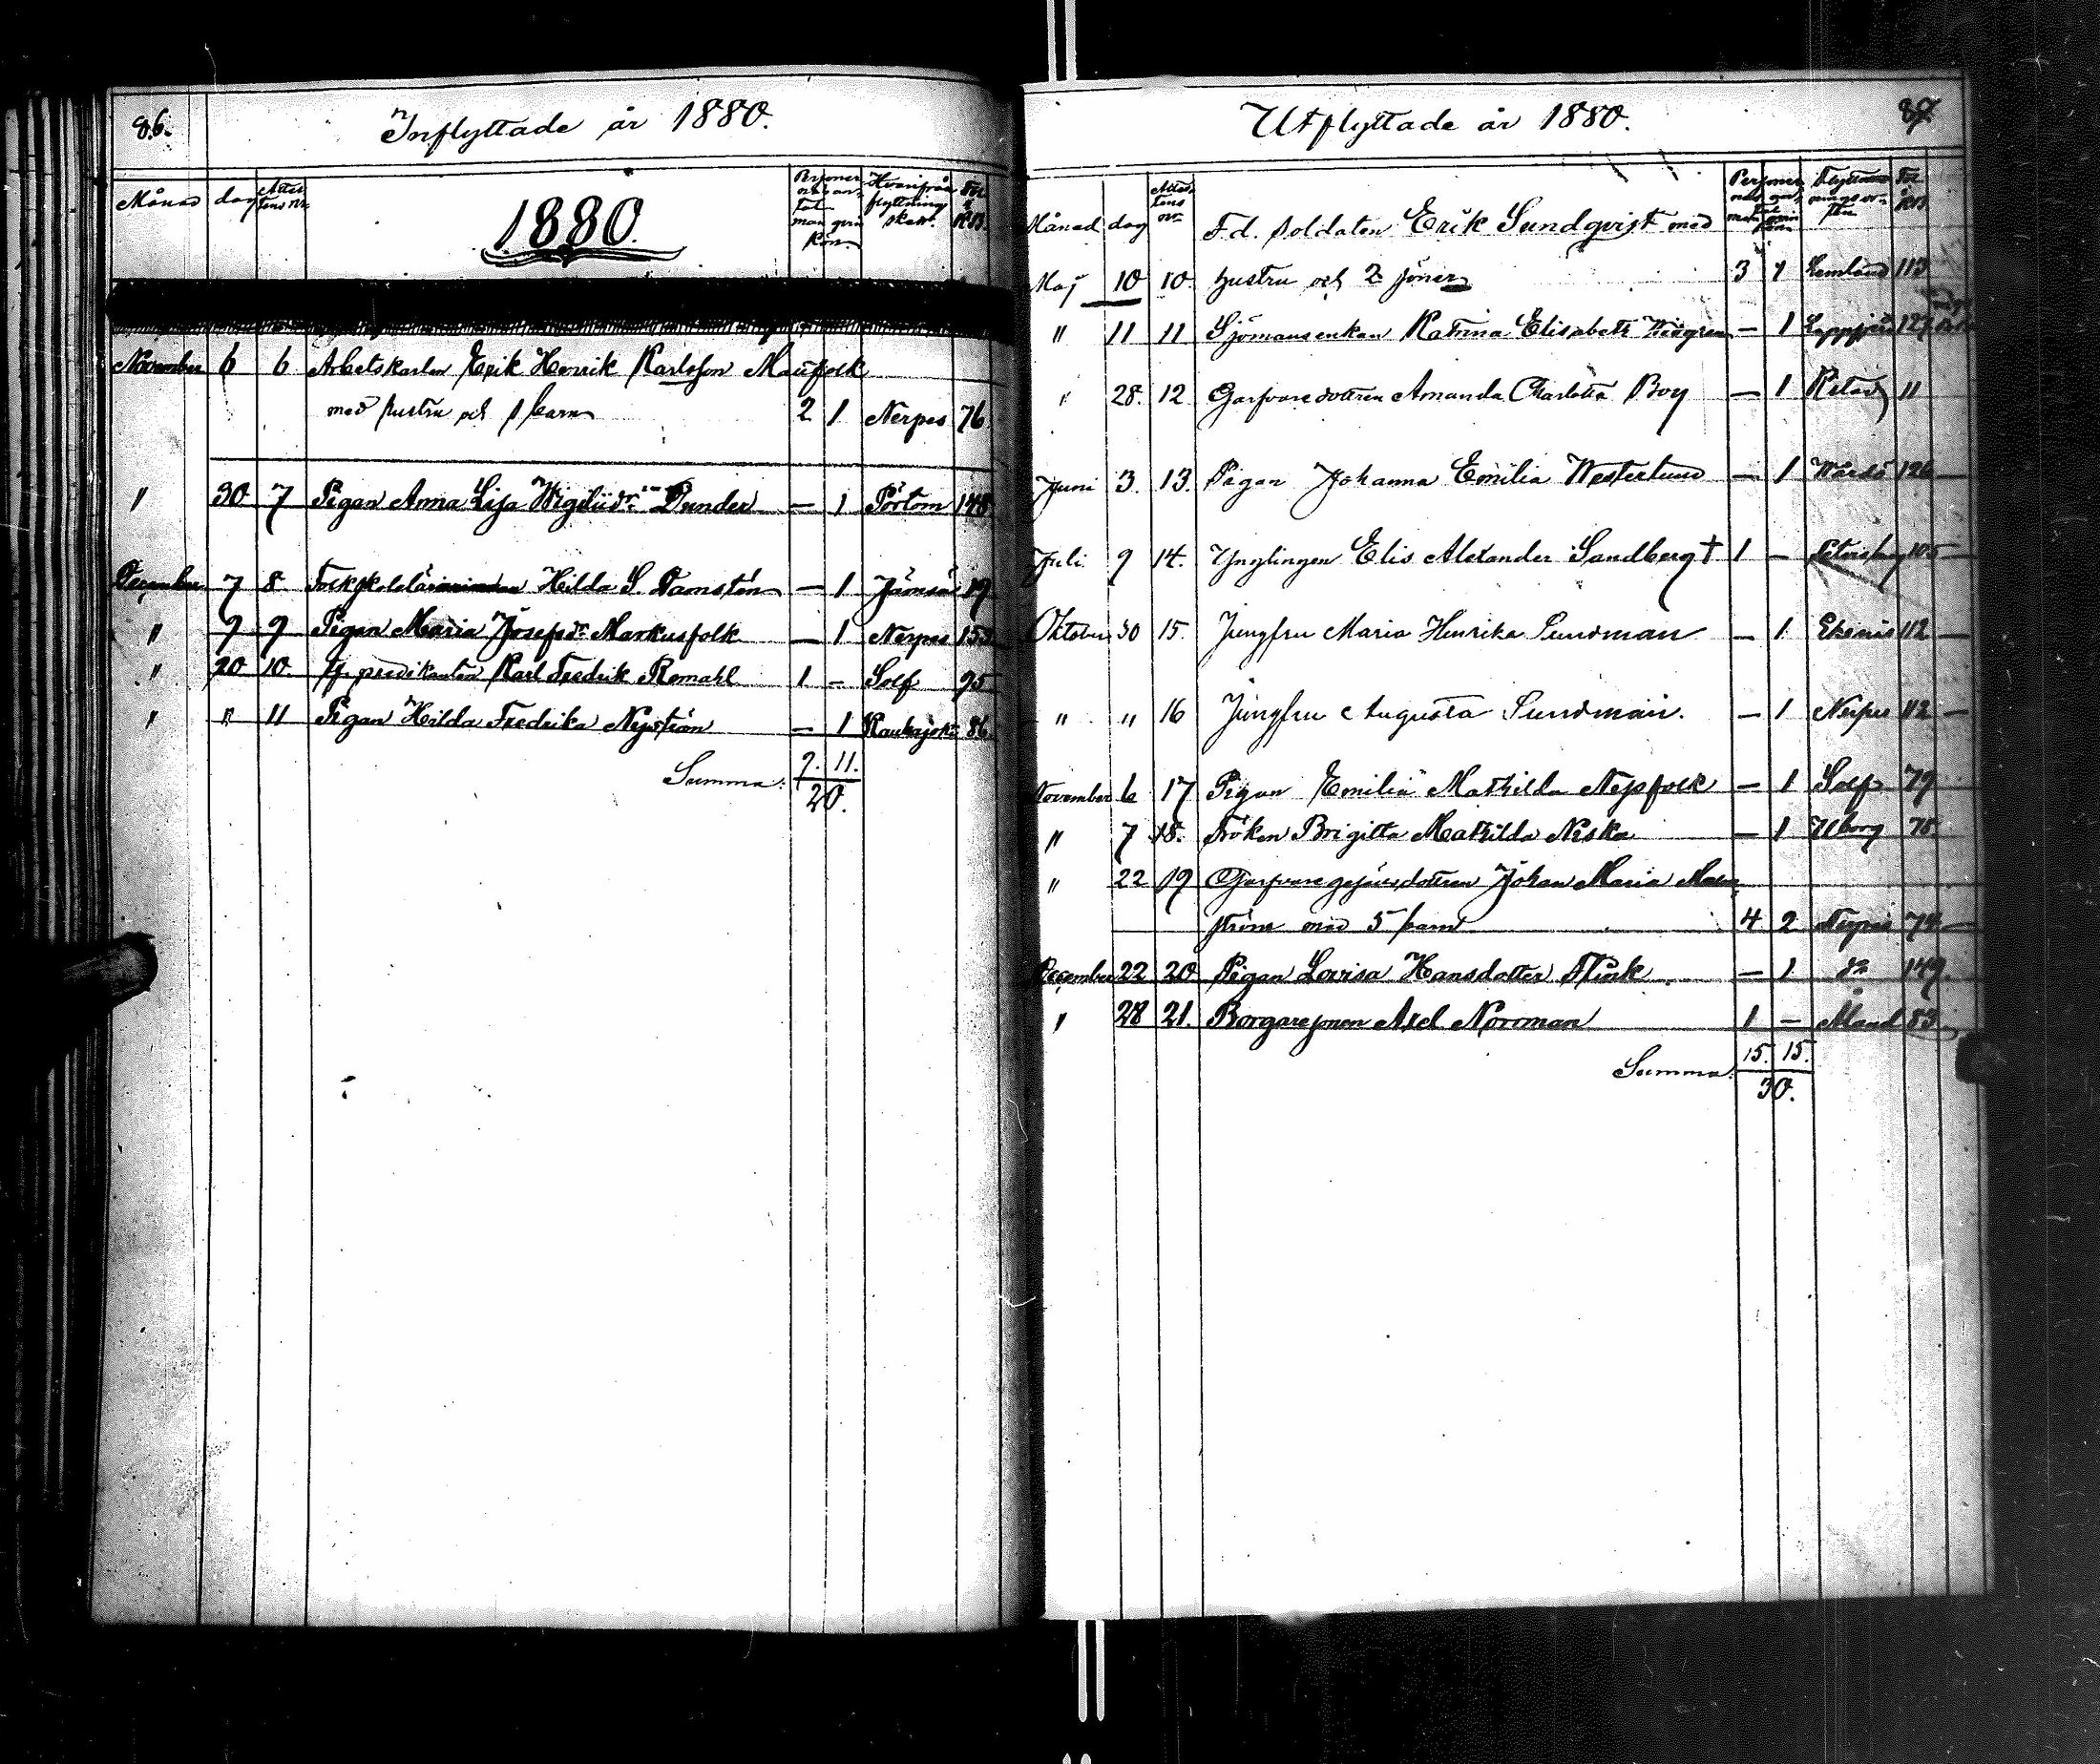 86.
Inflyttade år 1880.
Månad dag Attestens nr 1880. Personernas antal mankön qvinkön Hvarifrån flyttning skett. Fol. i K.B.
November 6 6 Arbetskarlen Erik Henrik Karlsson Maufolk
med hustru och 1 barn 2 1 Nerpes 76
" 30 7 Pigan Anna Lisa Dunder — 1 Pörtom 148
December 7 8 Hilda S. Damstén — 1 Jämsä 19
" 9 9 Pigan Maria Josefsdr Markusfolk — 1 Nerpes 153
" 20 10. predikanten Karl Fredrik Romahl 1 — Solf 95
" " 11 Pigan Hilda Fredrika Nyström — 1 86
Summa: 9. 11.
20.
87
Utflyttade år 1880.
Månad dag Attestens nr F.d. soldaten Erik Sundqvist med
Maj 10 10. hustru och 2 söner 3 1 Lemland 113
" 11 11 Sjömansenkan Katrina Elisabeth — 1 Lappfjärd 127
" 28. 12 Garfvaredottren Amanda Charlotta Boy — 1 11
Juni 3. 13. Pigan Johanna Emilia Westerlund — 1 Wårdö 126
Juli 9 14. Ynglingen Elis Alexander Sandberg † 1 — Petersburg 105
Oktober 30 15. Jungfru Maria Henrika Sundman — 1 Ekenäs 112
" " 16 Jungfru Augusta Sundman. — 1 Nerpes 112
November 6 17 Pigan Emilia Mathilda Nepfolk — 1 Solf 79
" 7 18. Fröken Brigitta Mathilda Niska — 1 Uborg 75
" 22 19 Johan Maria Malm
ström med 5 barn 4 2 Nerpes 74
December 22 20 Pigan Lovisa Hansdotter Flink — 1 do 149.
" 28 21. Borgaresonen Axel Norrman 1 — Åland 83
Summa: 15. 15.
30.